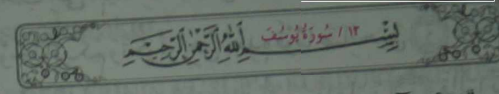 ١٢ / سُورَةُ يُوسُفَ
بِسْمِ اللَّهِ الرَّحْمَٰنِ الرَّحِيمِ